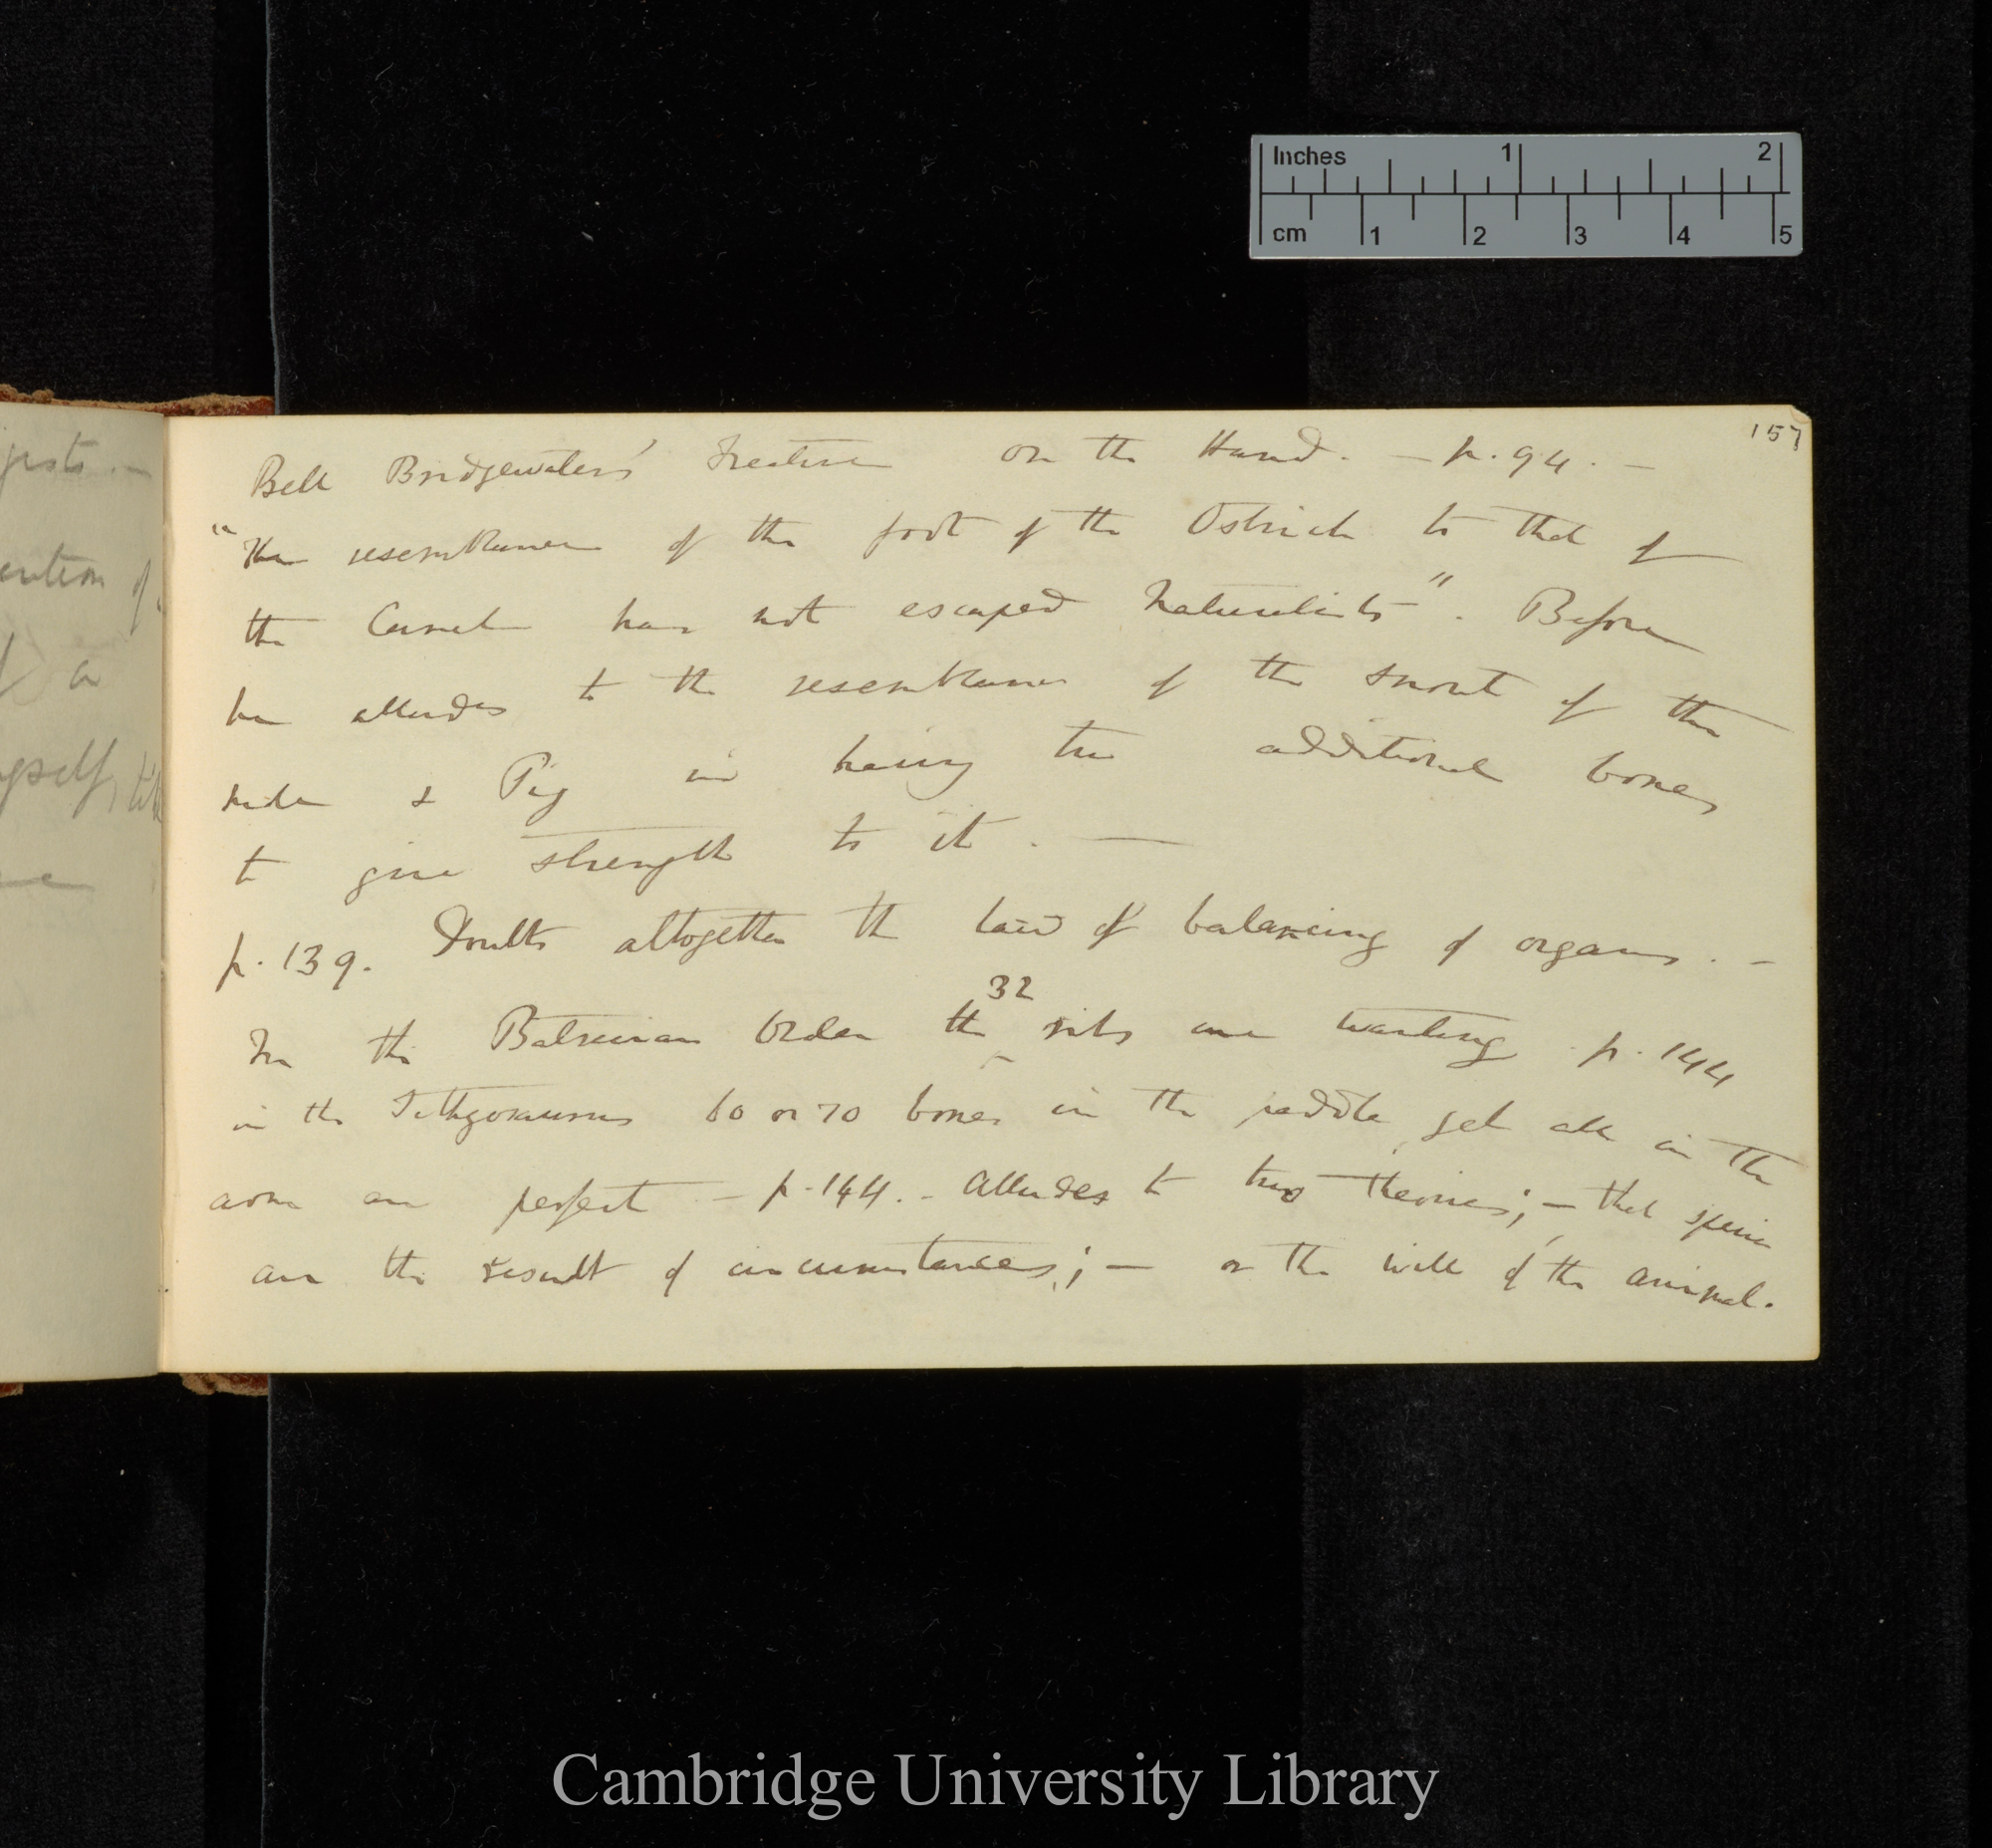 Inches 1 2
cm 1 2 3 4 5
157
Bell Bridgewaters' Treatise on the Hand. — p. 94. —
"The resemblance of the foot of the Ostrich to that of
the Camel has not escaped naturalists". Before
he alludes to the resemblance of the snout of the
mole & Pig in having two additional bones
to give strength to it. —
p. 139. Doubts altogether the law of balancing of organs. —
In the Batrician order the 32 ribs are wanting p. 144
in the Icthyosaurus 60 or 70 bones in the paddle, yet all in the
arm are perfect — p. 144. — Alludes to two theories; — that species
are the result of circumstances; — or the will of the animal.
Cambridge University Library